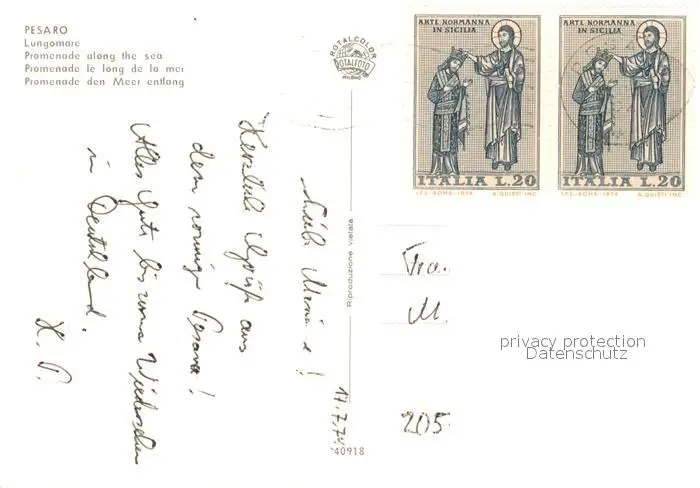 PESARO
Lungomare
Promenade along the sea
Promenade le long de la mer
Promenade den Meer entlang
ROTALCOLOR
ROTALFOTO
MILANO
ARTE NORMANNA
IN SICILIA
ITALIA L.20
I.P.S.-ROMA-1974 A.QUIETI INC.
ARTE NORMANNA
IN SICILIA
ITALIA L.20
I.P.S.-ROMA-1974 A.QUIETI INC.
Riproduzione vietata
40918
17.7.74
Herzliche Grüße aus
dem sonnigen Pesaro!
Alles Gute bis zum Wiedersehen
in Deutschland.
H. P.
Fra.
M.
205
privacy protection
Datenschutz